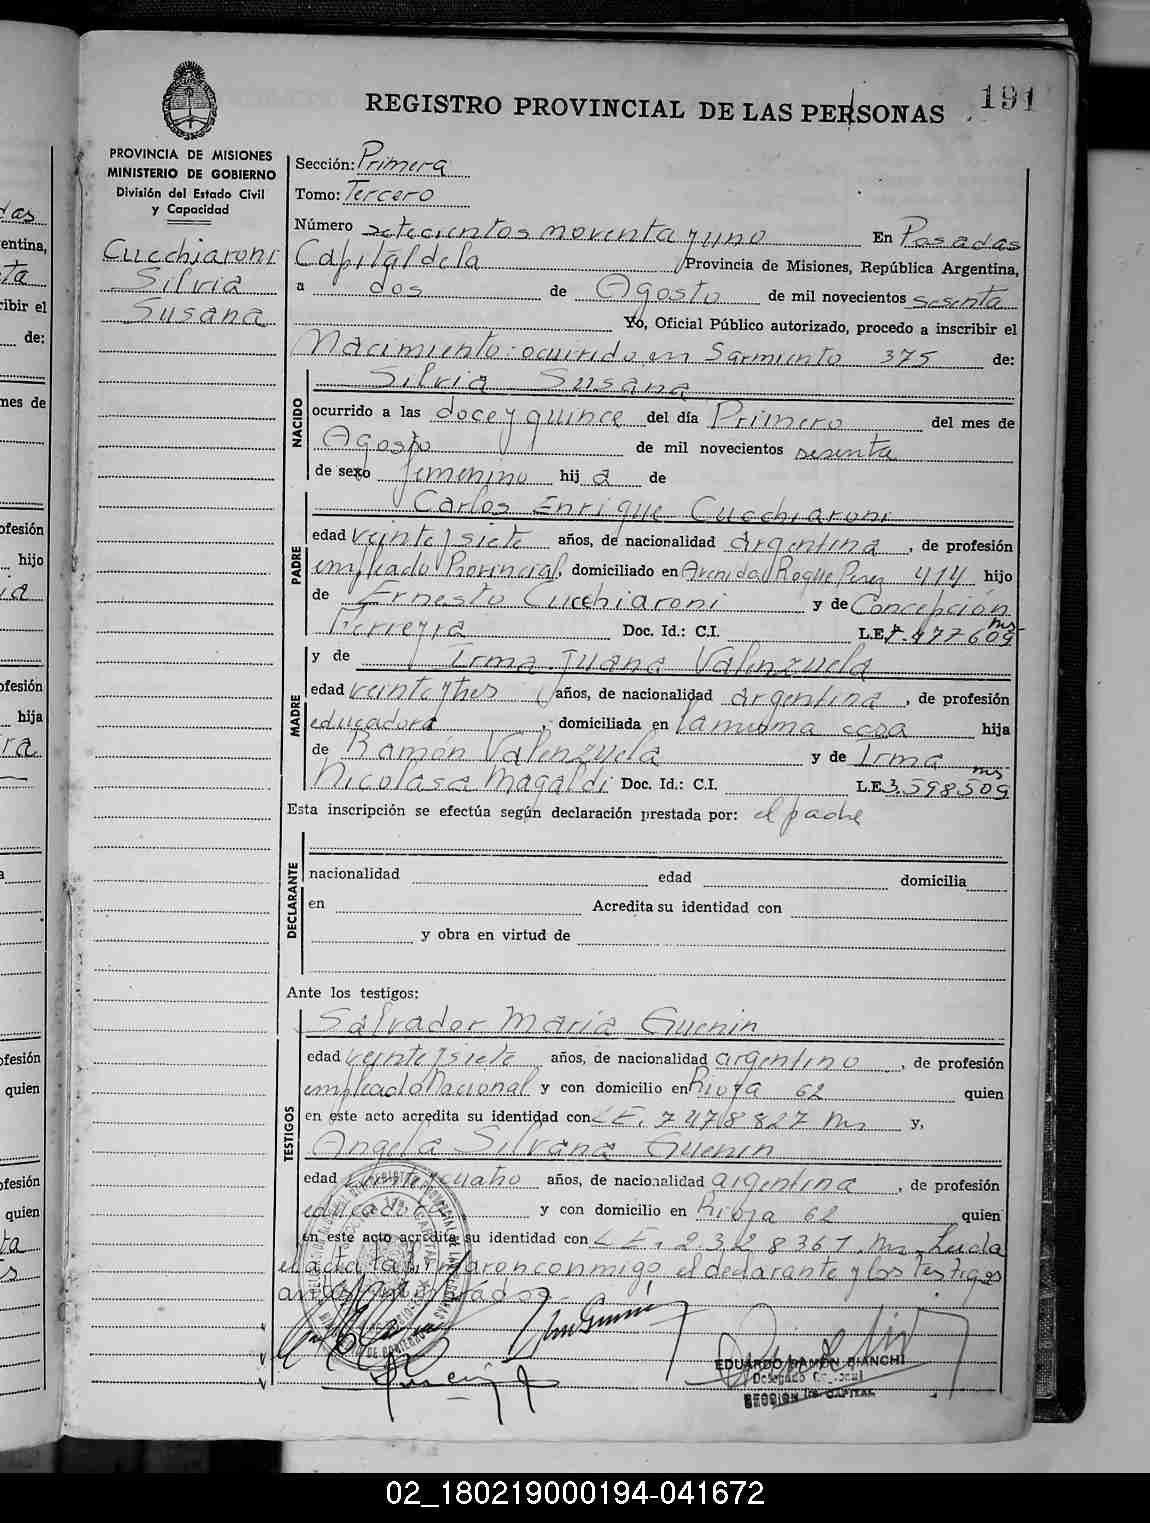 REGISTRO PROVINCIAL DE LAS PERSONAS
191
PROVINCIA DE MISIONES
MINISTERIO DE GOBIERNO
División del Estado Civil
y Capacidad
Cucchiaroni
Silvia
Susana
Sección: Primera
Tomo: Tercero
Número setecientos noventa y uno En Posadas
Capital de la Provincia de Misiones, República Argentina,
a dos de Agosto de mil novecientos sesenta
Yo, Oficial Público autorizado, procedo a inscribir el
Nacimiento: ocurrido en Sarmiento 375 de:
NACIDO
Silvia Susana
ocurrido a las doce y quince del día Primero del mes de
Agosto de mil novecientos sesenta
de sexo femenino hij a de
PADRE
Carlos Enrique Cucchiaroni
edad veinte y siete años, de nacionalidad argentina, de profesión
empleado Provincial, domiciliado en Avenida Roque Perez 414 hijo
de Ernesto Cucchiaroni y de Concepción
Ferreyra Doc. Id.: C.I. L.E. 7.477609 ms
MADRE
y de Irma Juana Valenzuela
edad veinte y tres años, de nacionalidad argentina, de profesión
educadora, domiciliada en la misma casa hija
de Ramón Valenzuela y de Irma
Nicolasa Magaldi Doc. Id.: C.I. L.E. 3.598509 ms
Esta inscripción se efectúa según declaración prestada por: el padre
DECLARANTE
nacionalidad edad domicilia
en Acredita su identidad con
y obra en virtud de
Ante los testigos:
TESTIGOS
Salvador Maria Guenin
edad veinte y siete años, de nacionalidad argentino, de profesión
empleado Nacional y con domicilio en Rioja 62 quien
en este acto acredita su identidad con LE. 7478827 ms y,
Angela Silvana Guenin
edad veinte y cuatro años, de nacionalidad argentina, de profesión
educadora y con domicilio en Rioja 62 quien
en este acto acredita su identidad con LE. 2328367 ms Leida
el acta la firmaron conmigo, el declarante y los testigos
EDUARDO RAMÓN BIANCHI
Delegado
SECCION 1ra. CAPITAL
02_180219000194-041672